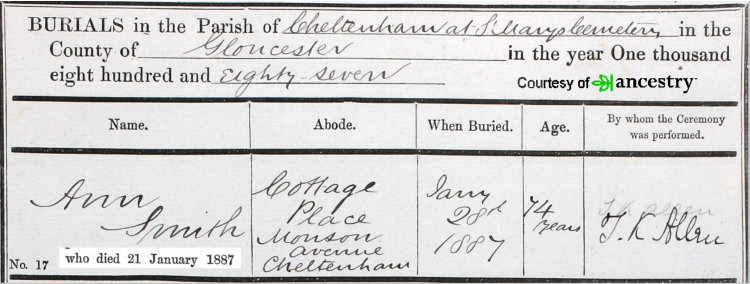 BURIALS in the Parish of Cheltenham at St Mary's Cemetery in the
County of Gloucester in the year One thousand
eight hundred and Eighty-seven
Courtesy of ancestry
Name. Abode. When Buried. Age. By whom the Ceremony was performed.
Ann
Smith
No. 17
who died 21 January 1887
Cottage
Place
Monson
avenue
Cheltenham
Jany
28th
1887
74
years
T. K. Allen
T. K. Allen